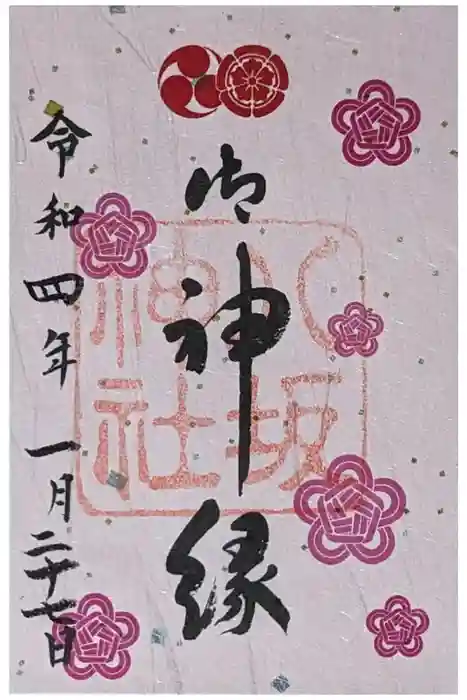 御神縁
八坂
神社
令和四年一月二十七日